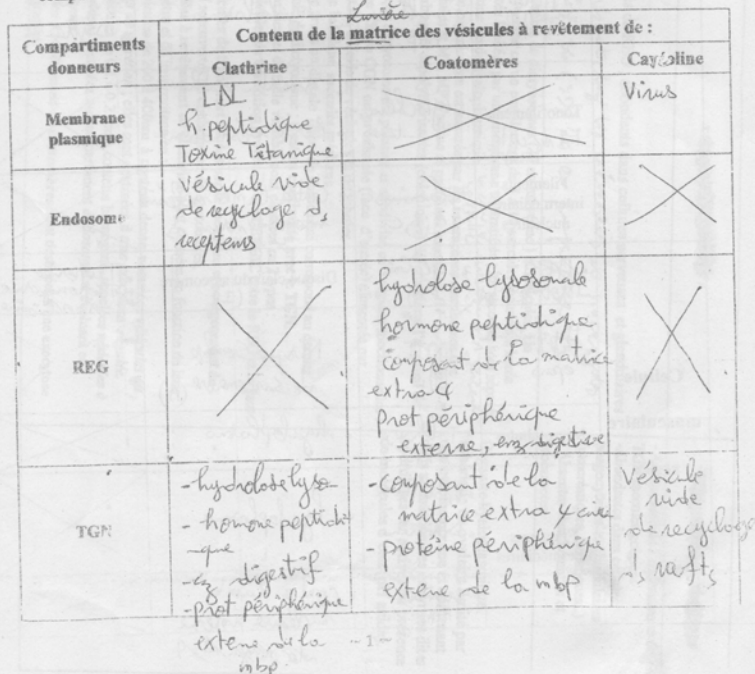 Lumière
Compartiments donneurs
Contenu de la matrice des vésicules à revêtement de :
Clathrine
Coatomères
Cavéoline
Membrane plasmique
LDL
h. peptidique
Toxine Tétanique
Virus
Endosome
vésicule vide
de recyclage ds
recepteurs
REG
hydrolase lysosomale
hormone peptidique
composant de la matrice
extra
prot périphérique
externe, enz digestive
TGN
- hydrolase lyso-
- hormone peptidi
-que
- ez digestif
- prot périphérique
externe de la
mbp
- composant de la
matrice extra
- protéine périphérique
externe de la mbp
Vésicule
vide
de recyclage
ds rafts
-1-